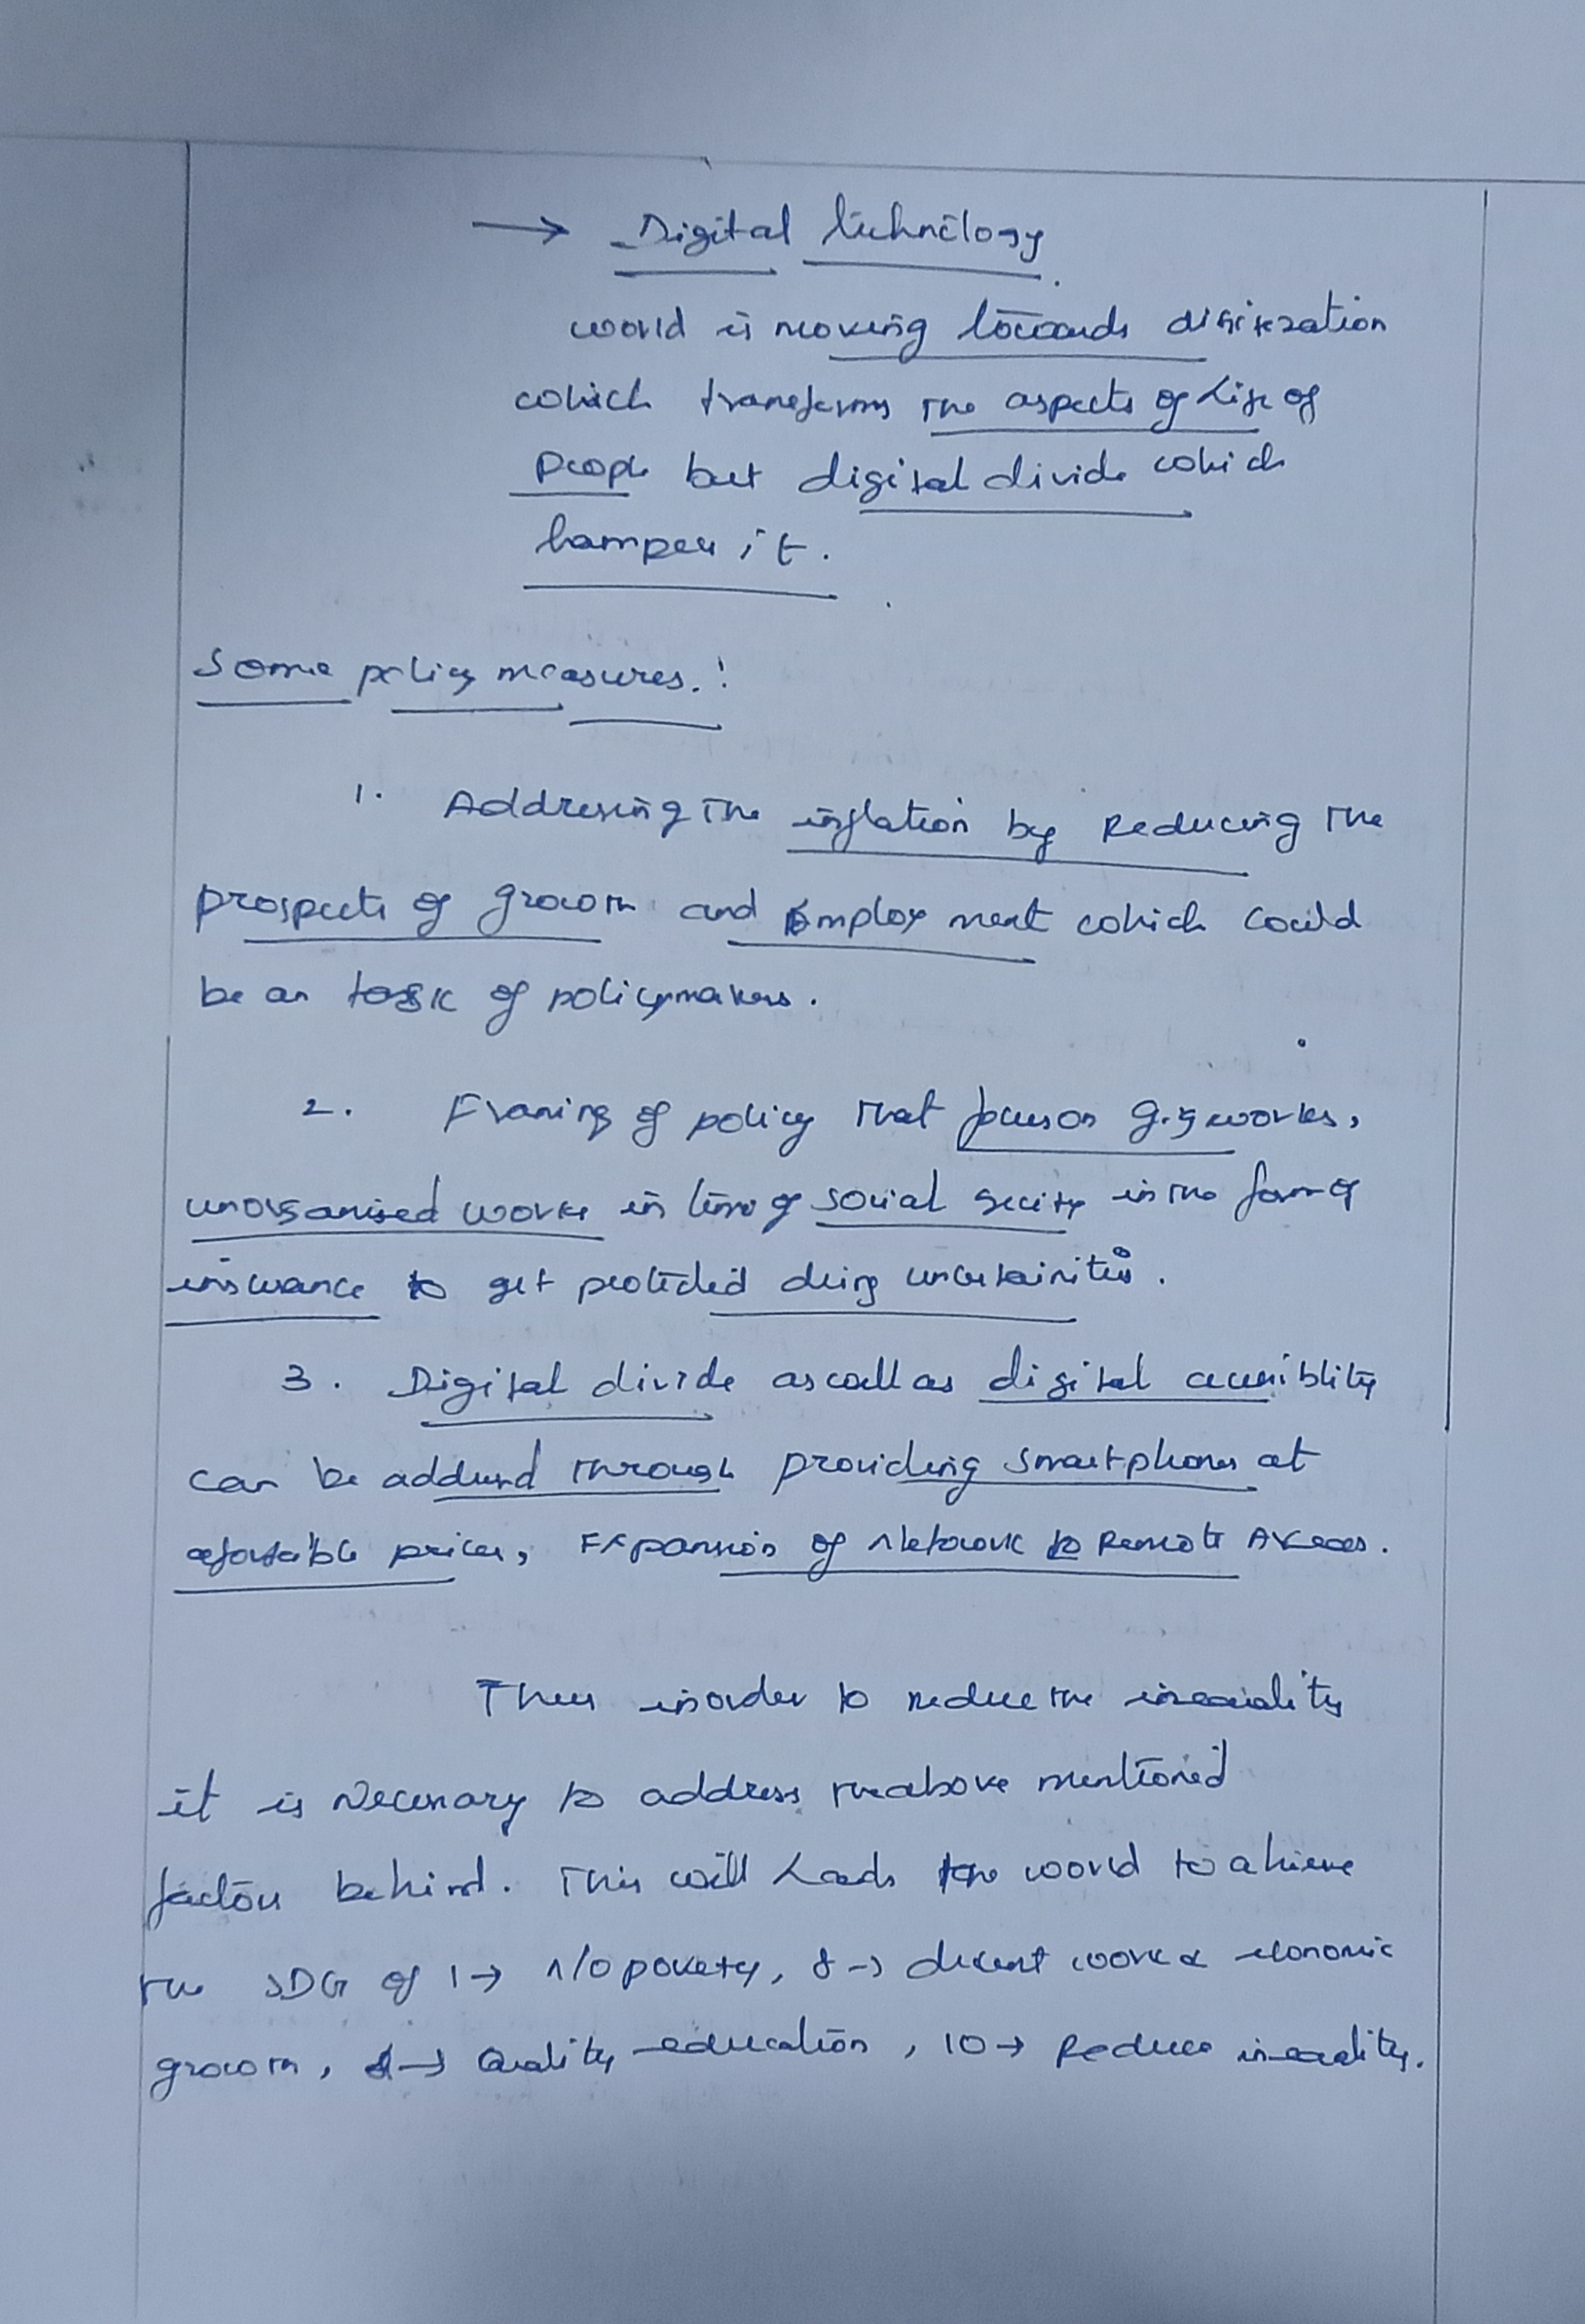 → Digital technology.
world is moving towards digitization
which transforms the aspects of Life of
People but digital divide which
hamper it.
Some policy measures.:
1. Addressing the inflation by Reducing the
prospects of growth and Employment which could
be an task of policymakers.
2. Framing of policy that focus on gig works,
unorganised works in time of social secity in the form of
insurance to get protected during uncertainities.
3. Digital divide as well as digital accessiblity
can be addressed through providing smartphones at
affortable prices, Expansion of Network to Remote Areas.
Thus inorder to reduce the inequality
it is Necessary to address the above mentioned
factors behind. This will Leads the world to achieve
the SDG of 1→ N/O poverty, 8→ decent work & economic
growth, 4→ Quality education, 10→ Reduce inequality.